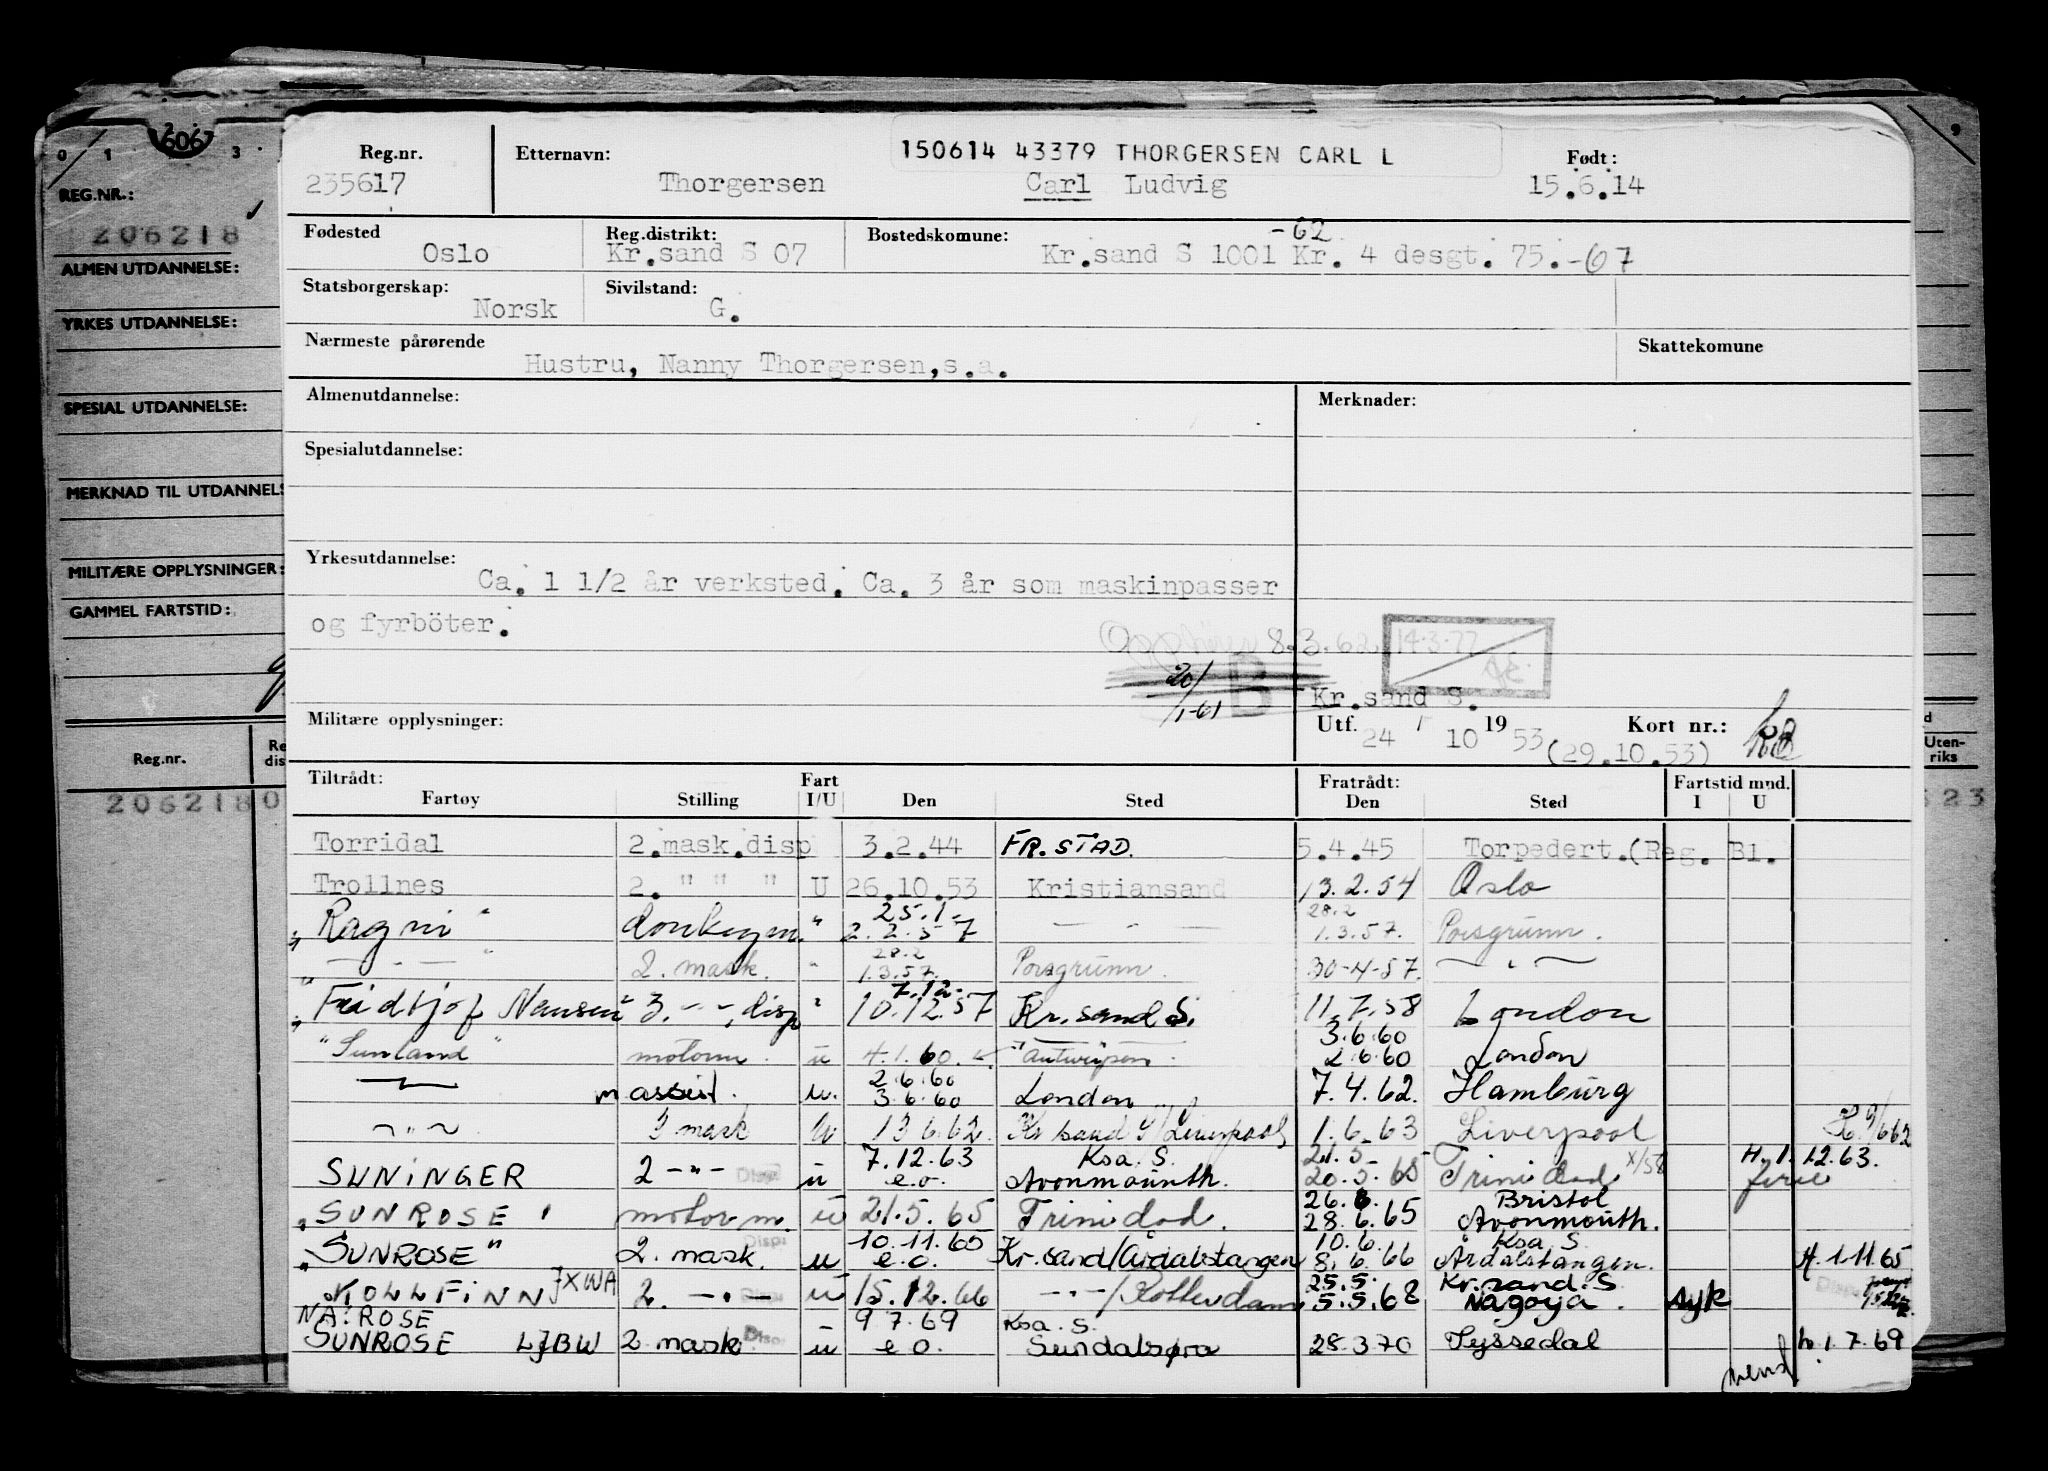 606
0 1 3
9
REG.NR.:
206218
ALMEN UTDANNELSE:
YRKES UTDANNELSE:
SPESIAL UTDANNELSE:
MERKNAD TIL UTDANNELS
MILITÆRE OPPLYSNINGER:
GAMMEL FARTSTID:
Reg.nr. Re dis
2062180
Uten- riks
23
150614 43379 THORGERSEN CARL L
Reg.nr. Etternavn: Født:
235617 Thorgersen Carl Ludvig 15.6.14
Fødested Reg.distrikt: Bostedskomune: -62
Oslo Kr.sand S 07 Kr.sand S 1001 Kr. 4 desgt. 75.-67
Statsborgerskap: Sivilstand:
Norsk G.
Nærmeste pårørende Skattekomune
Hustru, Nanny Thorgersen,s.a.
Almenutdannelse: Merknader:
Spesialutdannelse:
Yrkesutdannelse:
Ca. 1 1/2 år verksted. Ca. 3 år som maskinpasser
og fyrböter.
8.3.62 14.3.77
20/1-61 B Kr.sand S.
Militære opplysninger: Utf. 24 / 10 1953 (29.10.53) Kort nr.:
Tiltrådt: Fart Fratrådt: Fartstid mnd.
Fartøy Stilling I/U Den Sted Den Sted I U
Torridal 2.mask.disp 3.2.44 FR.STAD. 5.4.45 Torpedert.(Reg. Bl.
Trollnes 2. " " " U 26.10.53 Kristiansand 13.2.54 Oslo
25.1- 28.2
"Ragni" donkeym. " 2.2.57 — " — 1.3.57. Porsgrunn.
28.2
" — " — " 2. mask. " 1.3.57. Porsgrunn. 30-4-57. — " —
7.12-
"Fridtjof Nansen" 3. - " -, disp " 10.12.57 Kr.sand S. 11.7.58 London
3.6.60
"Sunland" motorm. u 4.1.60. Antwerpen. 2.6.60 London
2.6.60
— " — m assist. u. 3.6.60 London 7.4.62. Hamburg
— " — 3 mask u 13 6.62. Kr sand S/Liverpool 1.6.63 Liverpool
7.12.63 Ksa. S. 21.5- H. 1.12.63.
SUNINGER 2 - " - Disp u e.o. Avonmounth. 20.5.65 Trinidad ferie
26.6. Bristol
"SUNROSE" motor m. u 21.5.65 Trinidad. 28.6.65 Avonmouth.
10.11.65 10.6. Ksa S.
"SUNROSE" 2. mask. Disp u e.o. Kr.sand/Årdalstangen 8.6.66 Årdalstangen. H. 1.11.65
25.5. Kr.sand. S.
KOLLFINN JXWA 2. - " - u 15.12.66 - " -/Rotterdam 5.5.68 Nagoya. Syk
NA: ROSE 9 7.69 Ksa. S.
SUNROSE LJBW 2 mask Disp. u e o. Sundalsøra 28.3 70 Tyssedal h. 1.7.69
vend